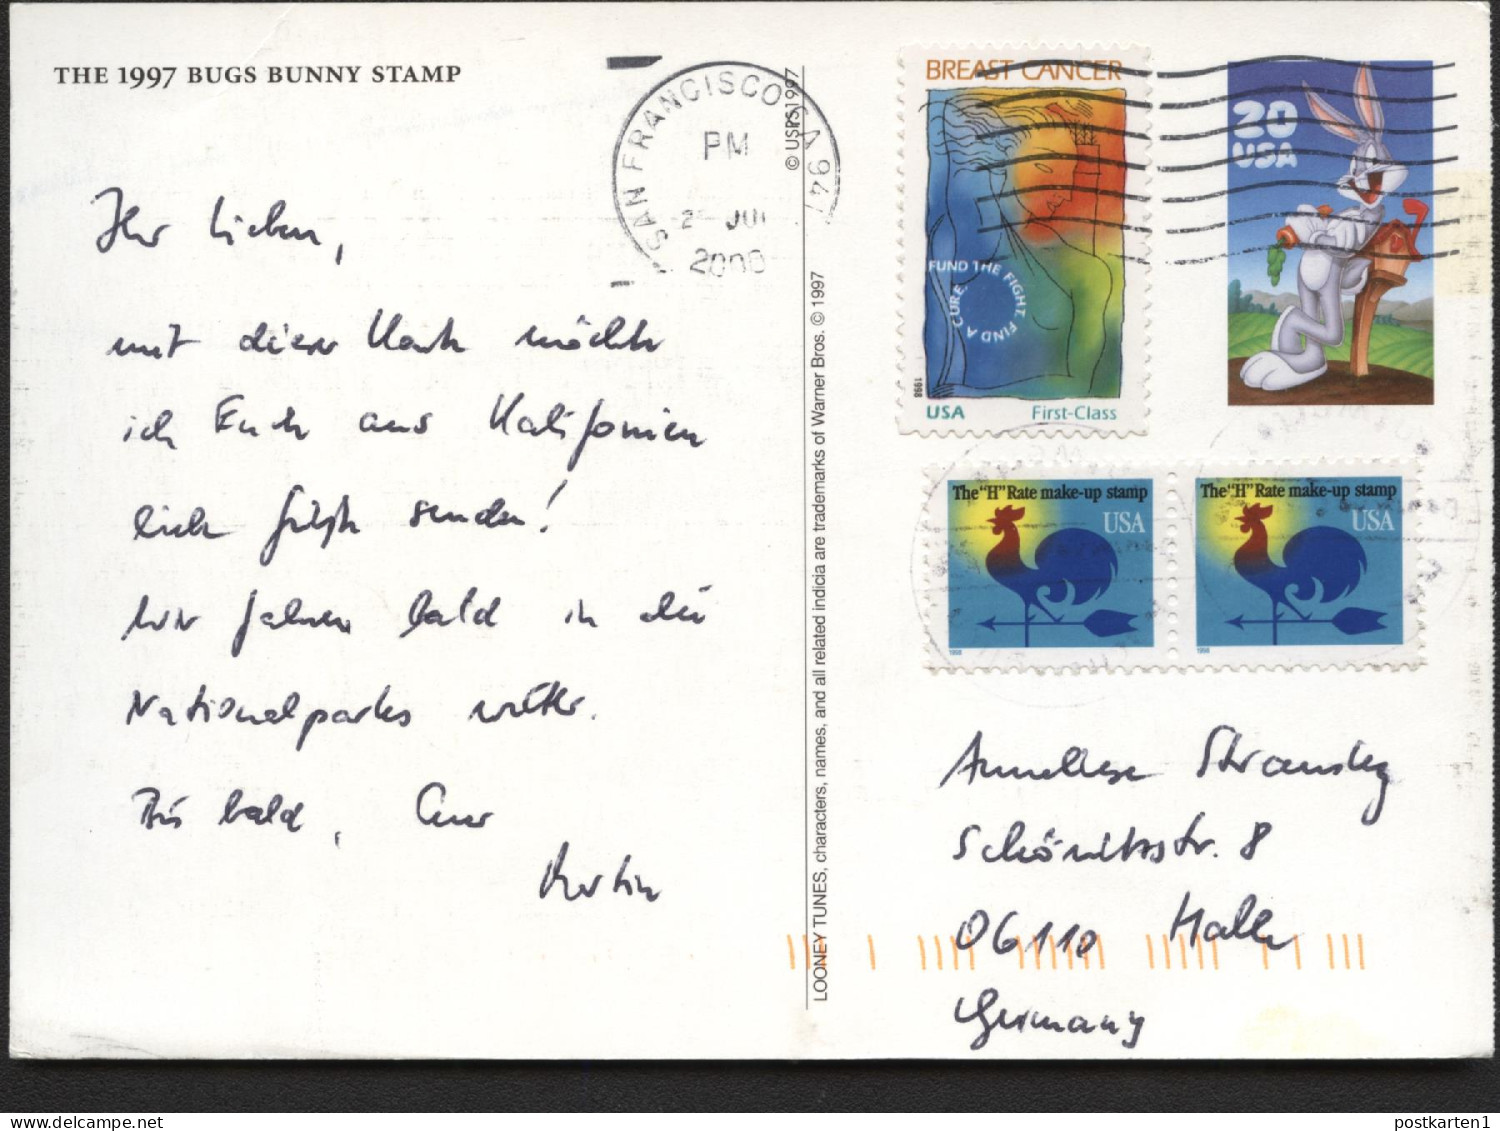 THE 1997 BUGS BUNNY STAMP
Ihr Lieben,
mit dieser Karte möchte
ich Euch aus Kalifornien
lieb grüßen senden!
Wir fahren bald in die
Nationalparks weiter.
Bis bald, Euer
Martin
SAN FRANCISCO CA 941
PM
2000
© USPS 1997
LOONEY TUNES, characters, names, and all related indicia are trademarks of Warner Bros. © 1997
BREAST CANCER
FUND THE FIGHT. FIND A CURE.
1998
USA First-Class
20
USA
The "H" Rate make-up stamp
USA
1998
The "H" Rate make-up stamp
USA
1998
Anneliese Stransky
Schönitzstr. 8
06110 Halle
Germany
postkarten1